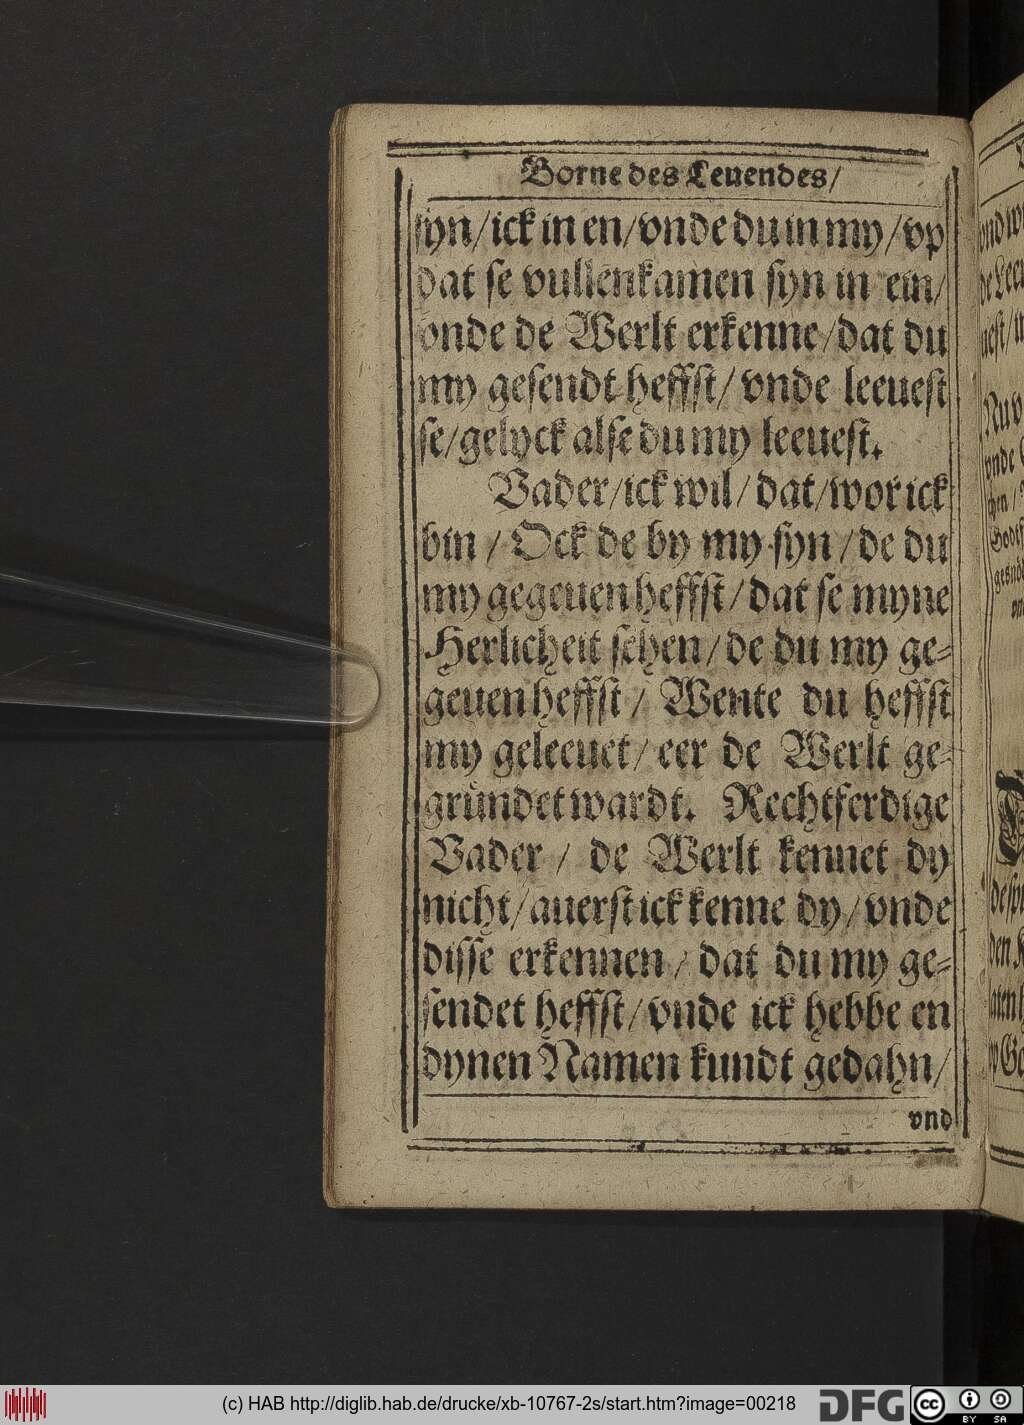 Borne des Leuendes/
syn/ick in en/vnde du in my/vp
dat se vullenkamen syn in ein/
vnde de Werlt erkenne/dat du
my gesendt heffst/ vnde leeuest
se/gelyck alse du my leeuest.
Vader/ick wil/dat/wor ick
bin / Ock de by my syn/de du
my gegeuen heffst/dat se myne
Herlicheit sehen/de du my ge-
geuen heffst/ Wente du heffst
my geleeuet/ eer de Werlt ge-
gründet wardt. Rechtferdige
Vader / de Werlt kennet dy
nicht/auerst ick kenne dy/vnde
disse erkennen/ dat du my ge-
sendet heffst/vnde ick hebbe en
dynen Namen kundt gedahn/
vnd
(c) HAB http://diglib.hab.de/drucke/xb-10767-2s/start.htm?image=00218
DFG
cc BY SA